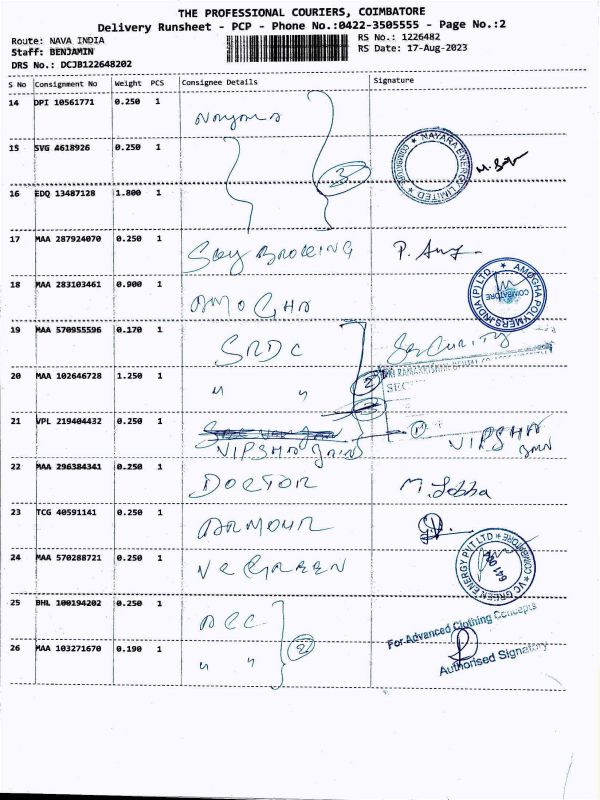 THE PROFESSIONAL COURIERS, COIMBATORE
Delivery Runsheet - PCP - Phone No.:0422-3505555 - Page No.:2
Route: NAVA INDIA
RS No.: 1226482
Staff: BENJAMIN
RS Date: 17-Aug-2023
DRS No.: DCJB122648202
S No Consignment No Weight PCS Consignee Details Signature
14 DPI 10561771 0.250 1 Nayara
NAYARA ENERGY LIMITED ★ COIMBATORE
15 SVG 4618926 0.250 1
3
16 EDQ 13487128 1.800 1
17 MAA 287924070 0.250 1 Sky BROKING
18 MAA 283103461 0.900 1 AMOGHA
AMOGHA POLYMERS INDIA (P) LTD., ★ COIMBATORE
19 MAA 570955596 0.170 1 SRDC SECURITY
20 MAA 102646728 1.250 1 " " 2
SEC
21 VPL 219404432 0.250 1
VIPSHA Jain VIPSHA
22 MAA 296384341 0.250 1 DOCTOR
23 TCG 40591141 0.250 1 ARMOUR
24 MAA 570288721 0.250 1 VC GREEN
VC GREEN ENERGY PVT LTD ★ COIMBATORE
641 004
25 BHL 100194202 0.250 1 ACC
For Advanced Clothing Concepts
26 MAA 103271670 0.190 1 " " 2
Authorised Signatory